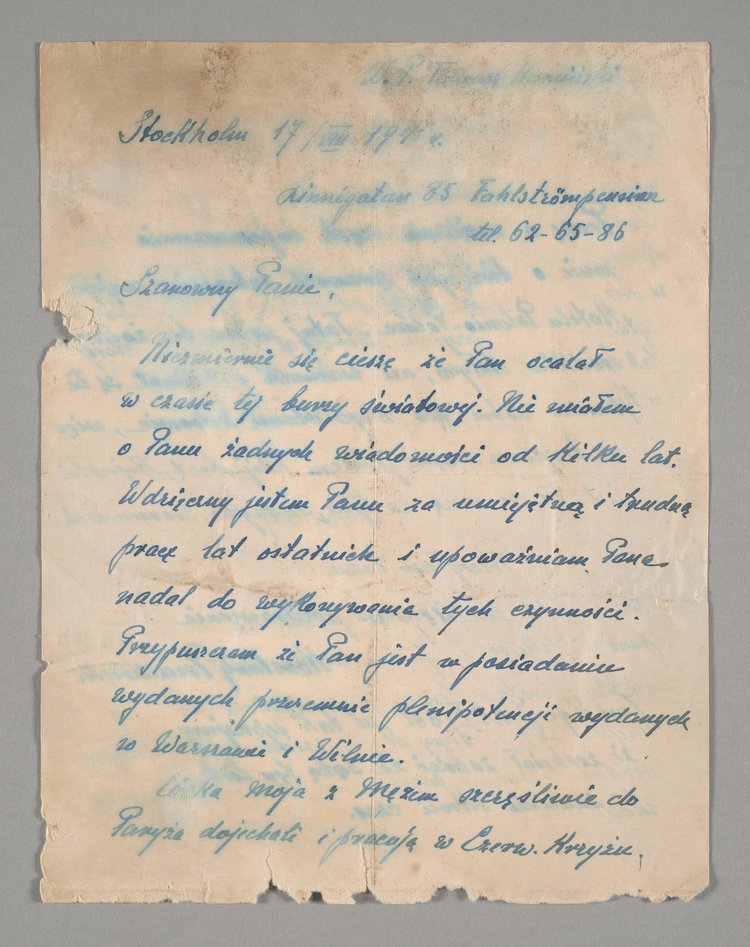 W. P. Tomasz Kamiński
Stockholm 17/VIII 1945 r.
Linnégatan 85 Fahlströmpension
tel. 62-65-86
Szanowny Panie,
Niezmiernie się cieszę że Pan ocalał
w czasie tej burzy światowej. Nie miałem
o Panu żadnych wiadomości od kilku lat.
Wdzięczny jestem Panu za umiejętną i trudną
pracę lat ostatnich i upoważniam Pana
nadal do wykonywania tych czynności.
Przypuszczam że Pan jest w posiadaniu
wydanych przezemnie plenipotencji wydanych
w Warszawie i Wilnie.
Córka moja z Mężem szczęśliwie do
Paryża dojechali i pracują w Czerw. Krzyżu,